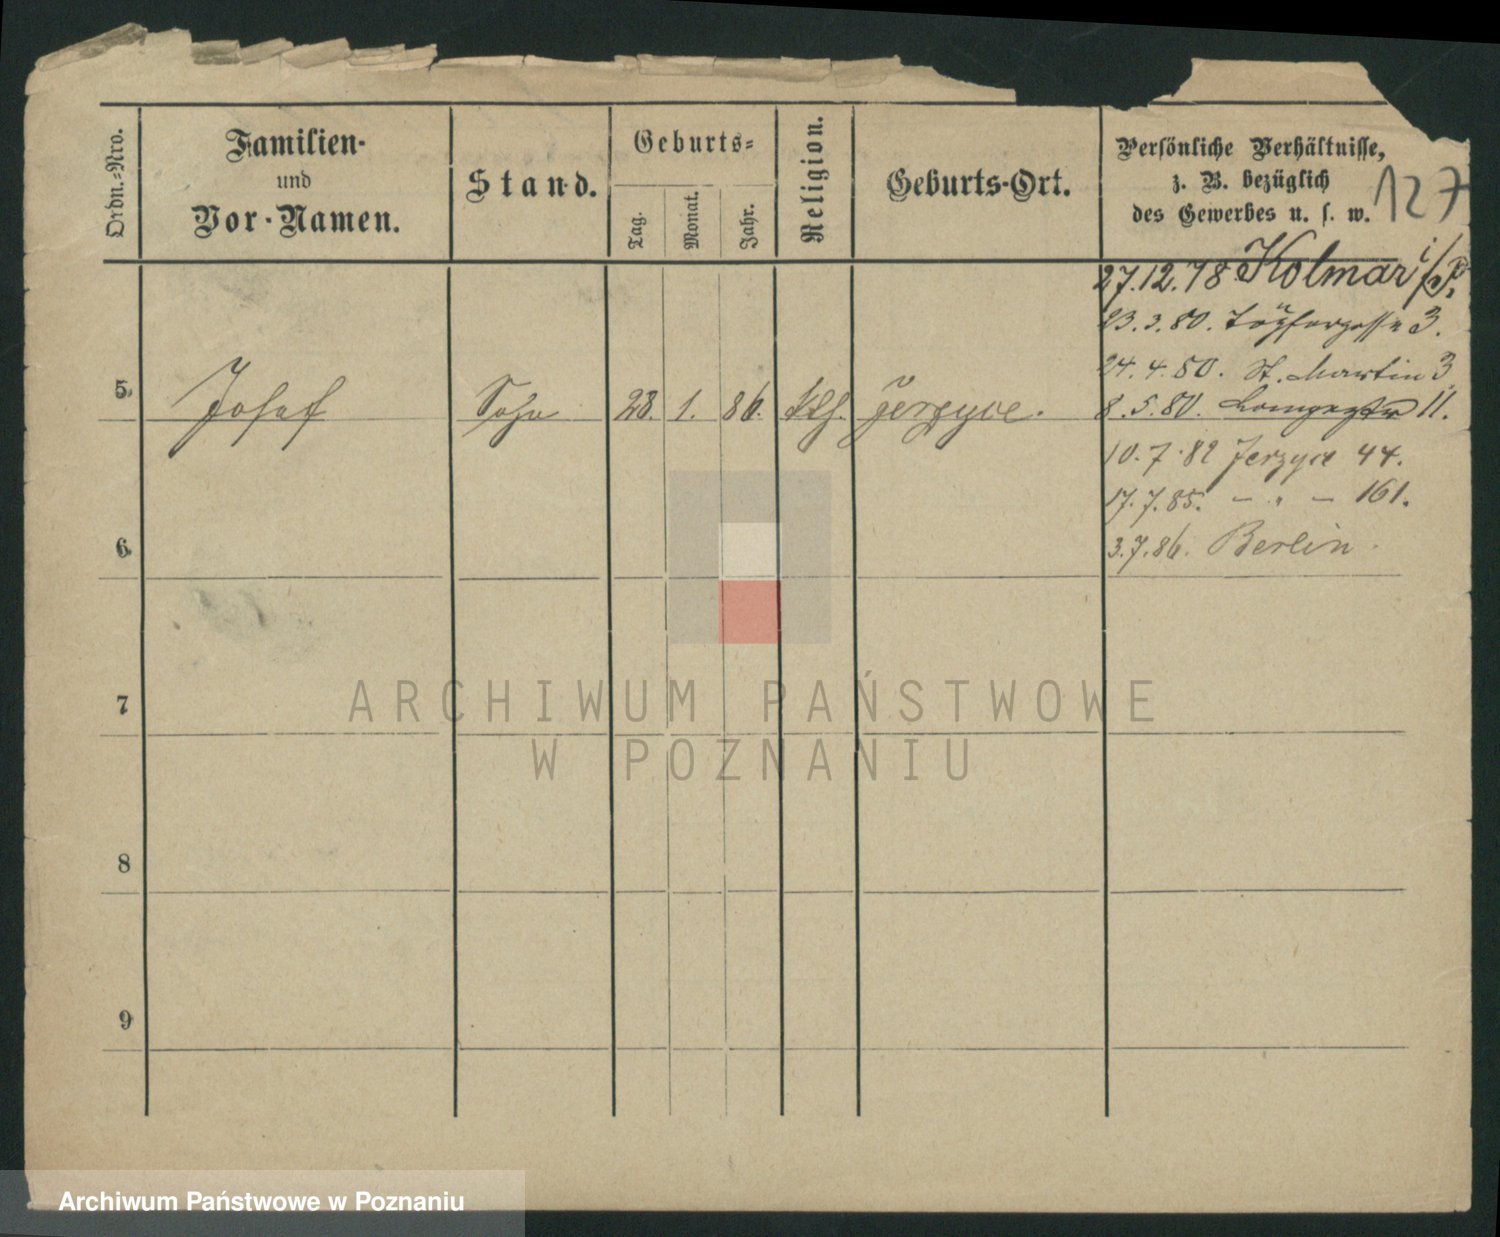 127
Ordn.-Nro.
Familien-
und
Vor-Namen.
Stand.
Geburts-
Tag.
Monat.
Jahr.
Religion.
Geburts-Ort.
Persönliche Verhältnisse,
z. B. bezüglich
des Gewerbes u. s. w.
27.12.78 Kolmar i/P.
23.3.80. Töpfergasse 3.
24.4.80. St. Martin 3
5. Josef Sohn 28. 1. 86. kth. Jerzyce.
8.5.80. 11.
10.7.82 Jerzyce 44.
17.7.85. — " — 161.
6.
3.7.86. Berlin.
7
ARCHIWUM PAŃSTWOWE
W POZNANIU
8
9
Archiwum Państwowe w Poznaniu